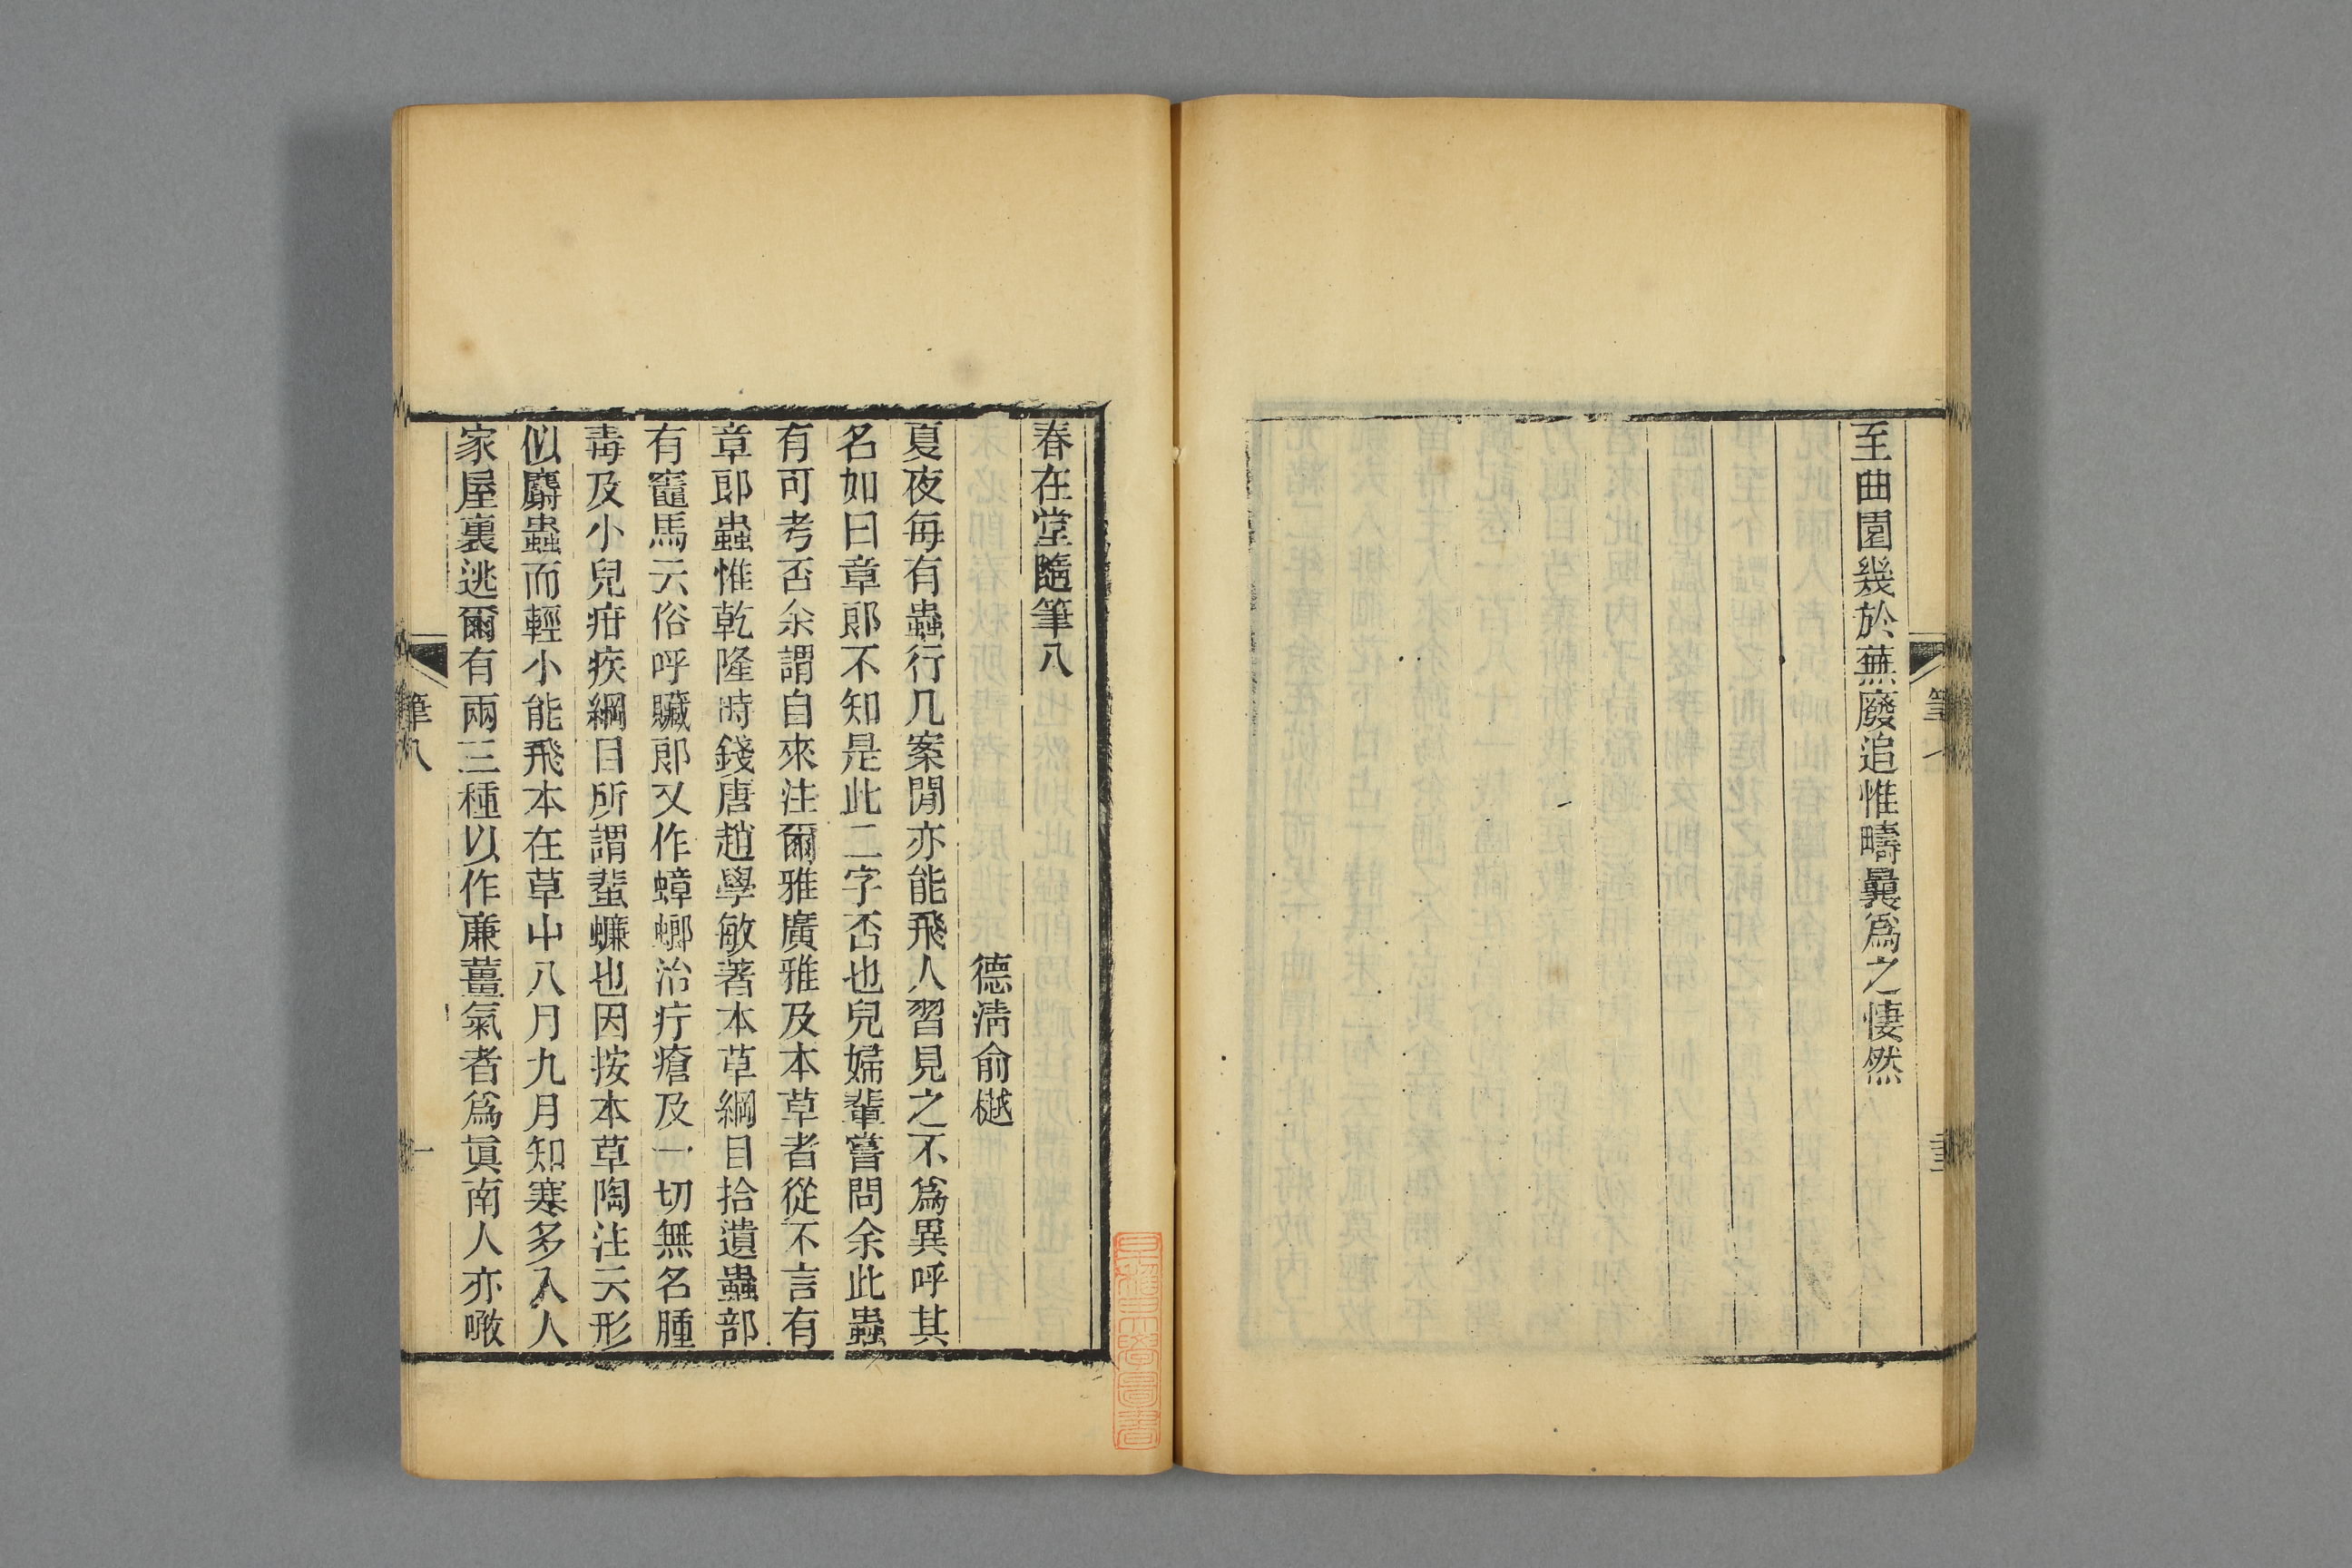 至曲園幾於蕪廢追惟疇曩爲之悽然
筆七
春在堂隨筆八
德淸俞樾
夏夜每有蟲行几案閒亦能飛人習見之不爲異呼其
名如曰章郎不知是此二字否也兒婦輩嘗問余此蟲
有可考否余謂自來注爾雅廣雅及本草者從不言有
章郎蟲惟乾隆時錢唐趙學敏著本草綱目拾遺蟲部
有竈馬云俗呼贜郎又作蟑螂治疔瘡及一切無名腫
毒及小兒疳疾綱目所謂蜚蠊也因按本草陶注云形
似䗪蟲而輕小能飛本在草中八月九月知寒多入人
家屋裏逃爾有兩三種以作廉薑氣者爲眞南人亦噉
筆八
一